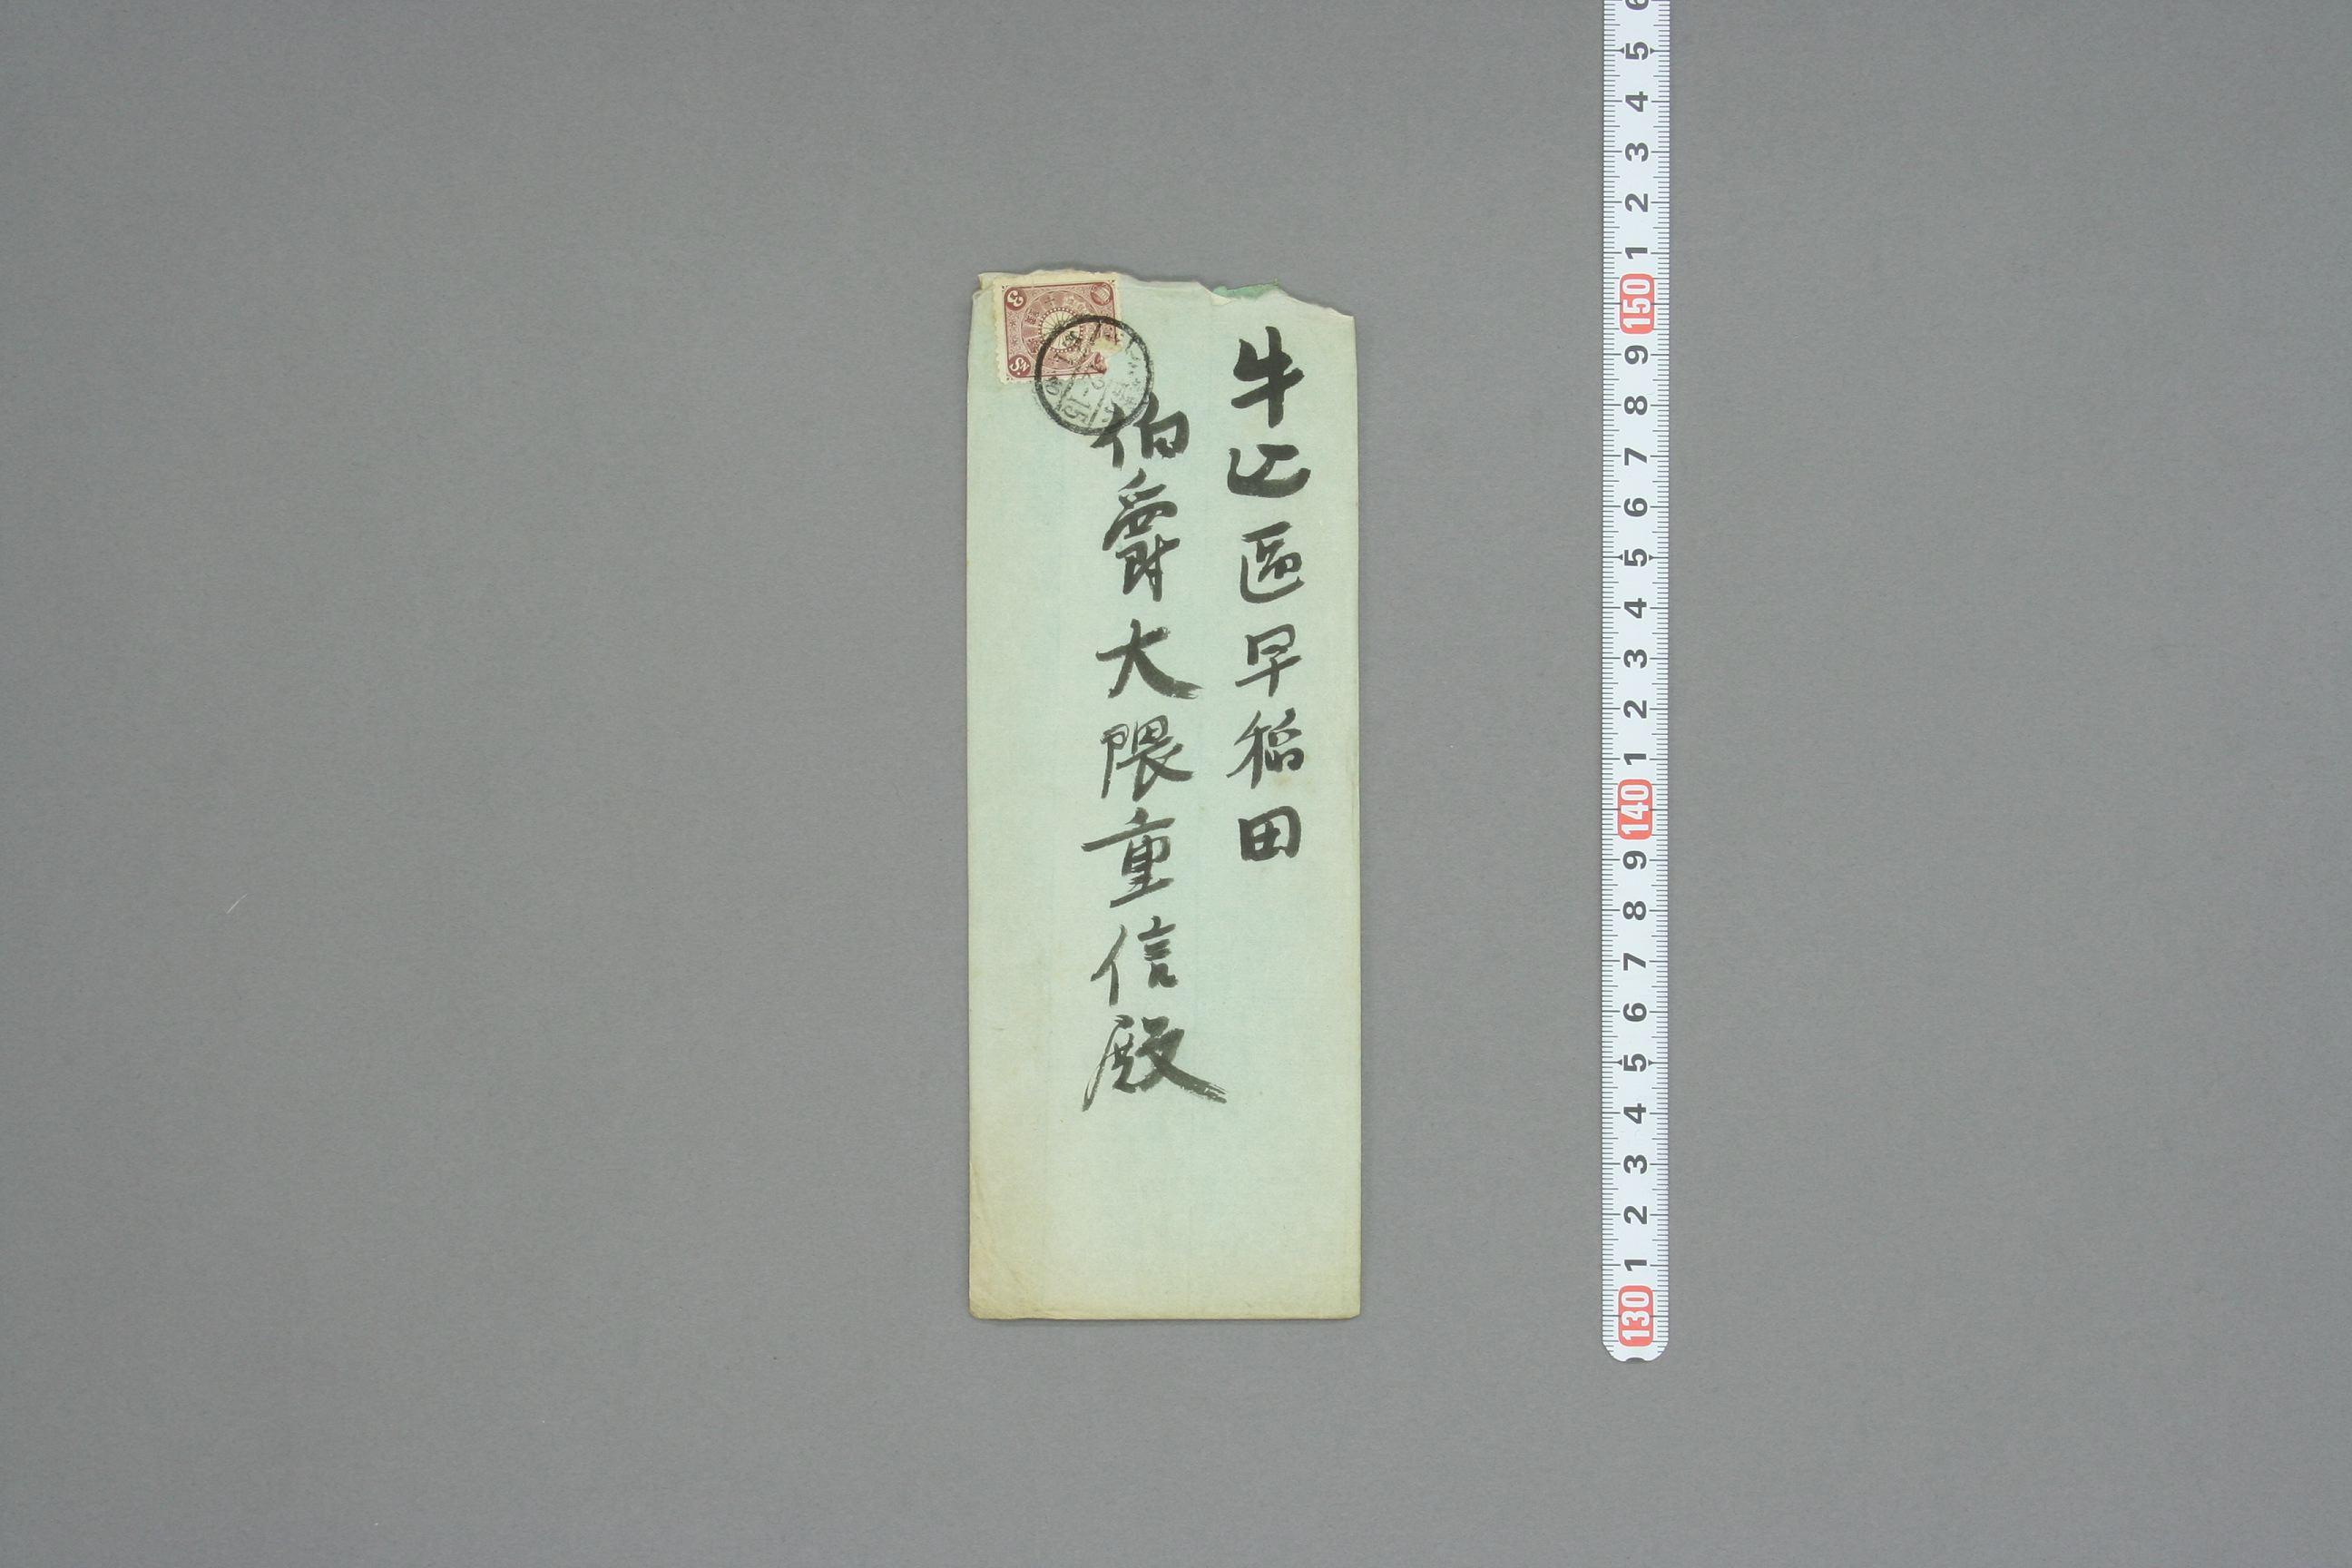 牛込區早稲田
伯爵大隈重信殿
6
5
4
3
2
1
150
9
8
7
6
5
4
3
2
1
140
9
8
7
6
5
4
3
2
1
130